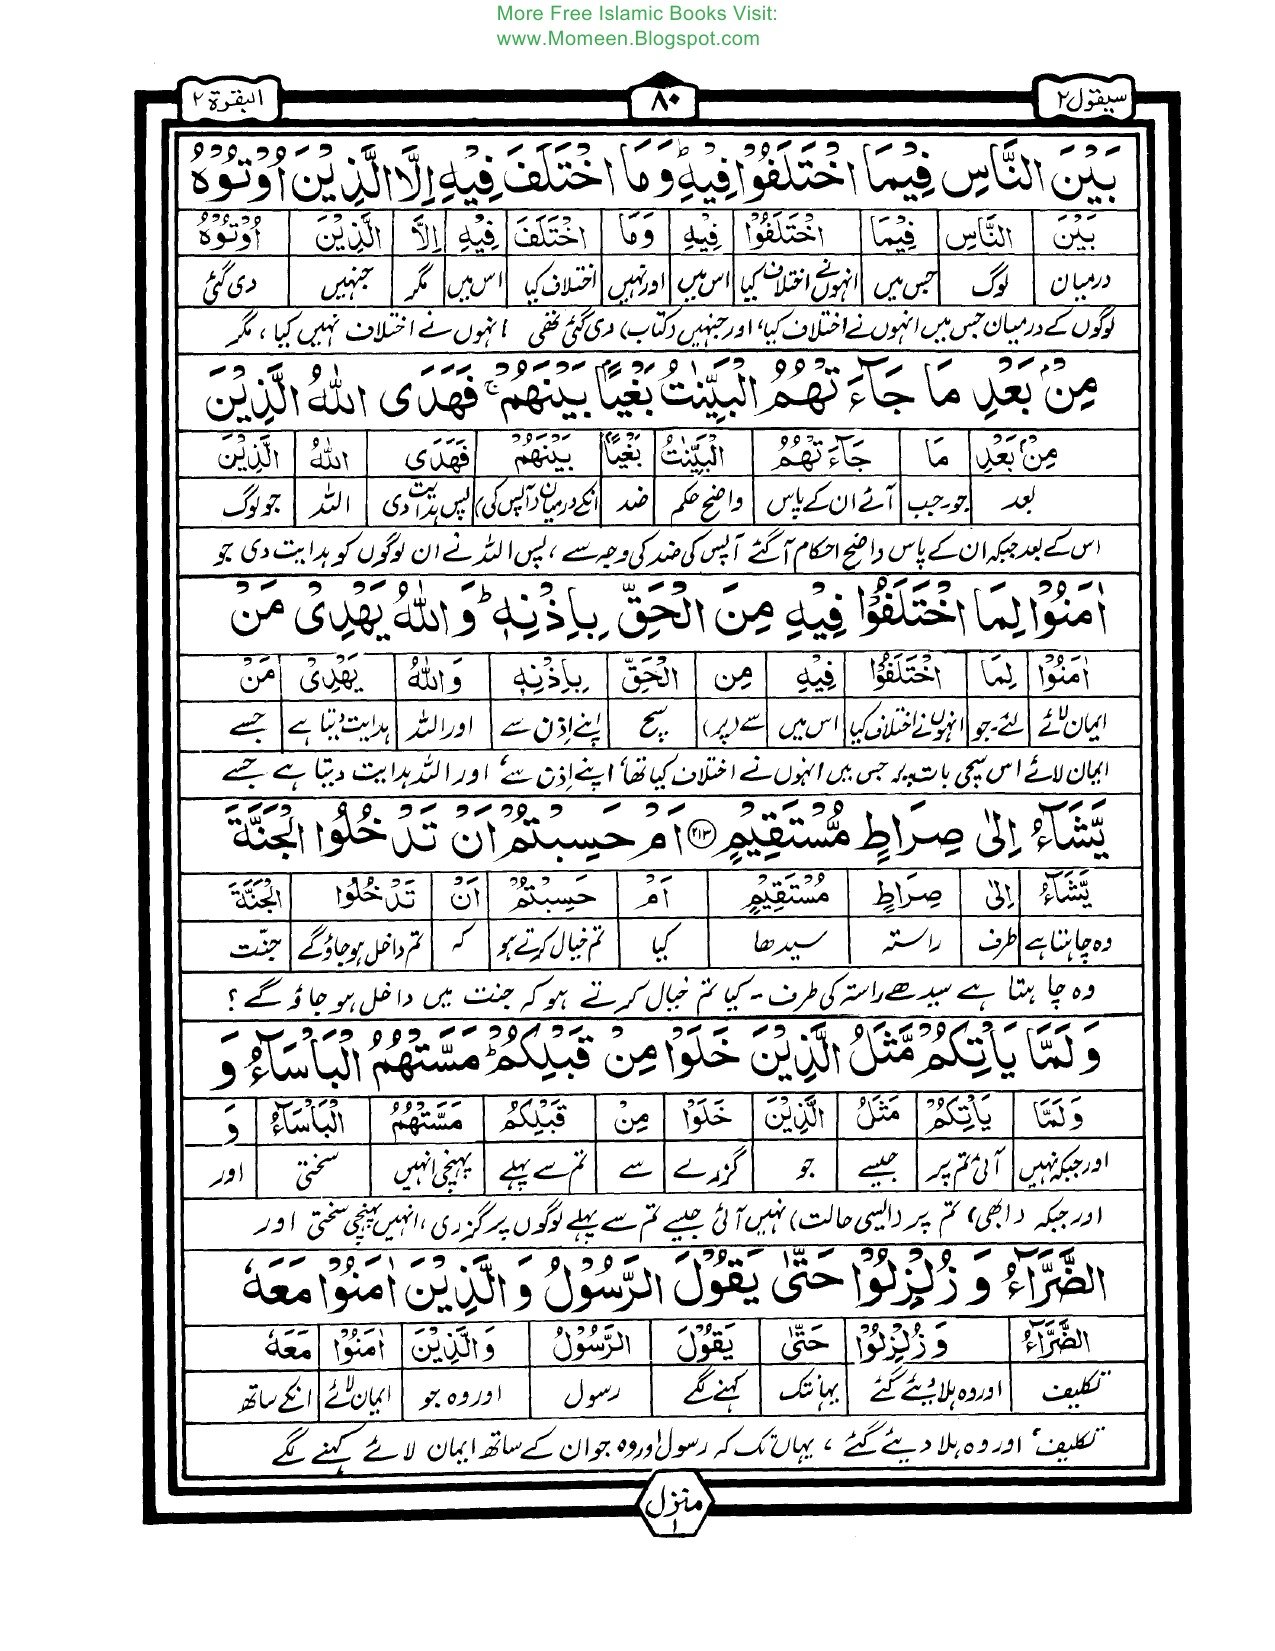 More Free Islamic Books Visit:
www.Momeen.Blogspot.com
سیقول ۲ ۸۰ البقرة ۲
بَيْنَ النَّاسِ فِيْمَا اخْتَلَفُوْا فِيْهِ ؕ وَمَا اخْتَلَفَ فِيْهِ اِلَّا الَّذِيْنَ اُوْتُوْهُ
بَيْنَ النَّاسِ فِيْمَا اخْتَلَفُوْا فِيْهِ وَمَا اخْتَلَفَ فِيْهِ اِلَّا الَّذِيْنَ اُوْتُوْهُ
درمیان لوگ جس میں انہوں نے اختلاف کیا اس میں اور نہیں اختلاف کیا اس میں مگر جنہیں دی گئی
لوگوں کے درمیان جس میں انہوں نے اختلاف کیا، اور جنہیں (کتاب) دی گئی تھی انہوں نے اختلاف نہیں کیا، مگر
مِنْۢ بَعْدِ مَا جَآءَتْهُمُ الْبَيِّنٰتُ بَغْيًۢا بَيْنَهُمْ ۚ فَهَدَى اللّٰهُ الَّذِيْنَ
مِنْۢ بَعْدِ مَا جَآءَتْهُمُ الْبَيِّنٰتُ بَغْيًۢا بَيْنَهُمْ فَهَدَى اللّٰهُ الَّذِيْنَ
بعد جو۔جب آئے ان کے پاس واضح حکم ضد انکے درمیان (آپس کی) پس ہدایت دی اللہ جو لوگ
اس کے بعد جبکہ ان کے پاس واضح احکام آگئے آپس کی ضد کی وجہ سے، پس اللہ نے ان لوگوں کو ہدایت دی جو
اٰمَنُوْا لِمَا اخْتَلَفُوْا فِيْهِ مِنَ الْحَقِّ بِاِذْنِهٖ ؕ وَاللّٰهُ يَهْدِىْ مَنْ
اٰمَنُوْا لِمَا اخْتَلَفُوْا فِيْهِ مِنَ الْحَقِّ بِاِذْنِهٖ وَاللّٰهُ يَهْدِىْ مَنْ
ایمان لائے لئے۔جو انہوں نے اختلاف کیا اس میں سے (پر) سچ اپنے اذن سے اور اللہ ہدایت دیتا ہے جسے
ایمان لائے اس سچی بات پر جس میں انہوں نے اختلاف کیا تھا، اپنے اذن سے، اور اللہ ہدایت دیتا ہے جسے
يَّشَآءُ اِلٰى صِرَاطٍ مُّسْتَقِيْمٍ ﴿۲۱۳﴾ اَمْ حَسِبْتُمْ اَنْ تَدْخُلُوا الْجَنَّةَ
يَّشَآءُ اِلٰى صِرَاطٍ مُسْتَقِيْمٍ اَمْ حَسِبْتُمْ اَنْ تَدْخُلُوا الْجَنَّةَ
وہ چاہتا ہے طرف راستہ سیدھا کیا تم خیال کرتے ہو کہ تم داخل ہو جاؤ گے جنّت
وہ چاہتا ہے سیدھے راستہ کی طرف۔ کیا تم خیال کرتے ہو کہ جنت میں داخل ہو جاؤ گے؟
وَلَمَّا يَاْتِكُمْ مَّثَلُ الَّذِيْنَ خَلَوْا مِنْ قَبْلِكُمْ ؕ مَسَّتْهُمُ الْبَاْسَآءُ وَ
وَلَمَّا يَاْتِكُمْ مَثَلُ الَّذِيْنَ خَلَوْا مِنْ قَبْلِكُمْ مَسَّتْهُمُ الْبَاْسَآءُ وَ
اور جبکہ نہیں آئی تم پر جیسے جو گزرے سے تم سے پہلے پہنچی انہیں سختی اور
اور جبکہ (ابھی) تم پر (ایسی حالت) نہیں آئی جیسے تم سے پہلے لوگوں پر گزری، انہیں پہنچی سختی اور
الضَّرَّآءُ وَزُلْزِلُوْا حَتّٰى يَقُوْلَ الرَّسُوْلُ وَالَّذِيْنَ اٰمَنُوْا مَعَهٗ
الضَّرَّآءُ وَزُلْزِلُوْا حَتّٰى يَقُوْلَ الرَّسُوْلُ وَالَّذِيْنَ اٰمَنُوْا مَعَهٗ
تکلیف اور وہ ہلا دیئے گئے یہانتک کہنے لگے رسول اور وہ جو ایمان لائے انکے ساتھ
تکلیف، اور وہ ہلا دیئے گئے، یہاں تک کہ رسول اور وہ جو ان کے ساتھ ایمان لائے کہنے لگے
منزل ۱